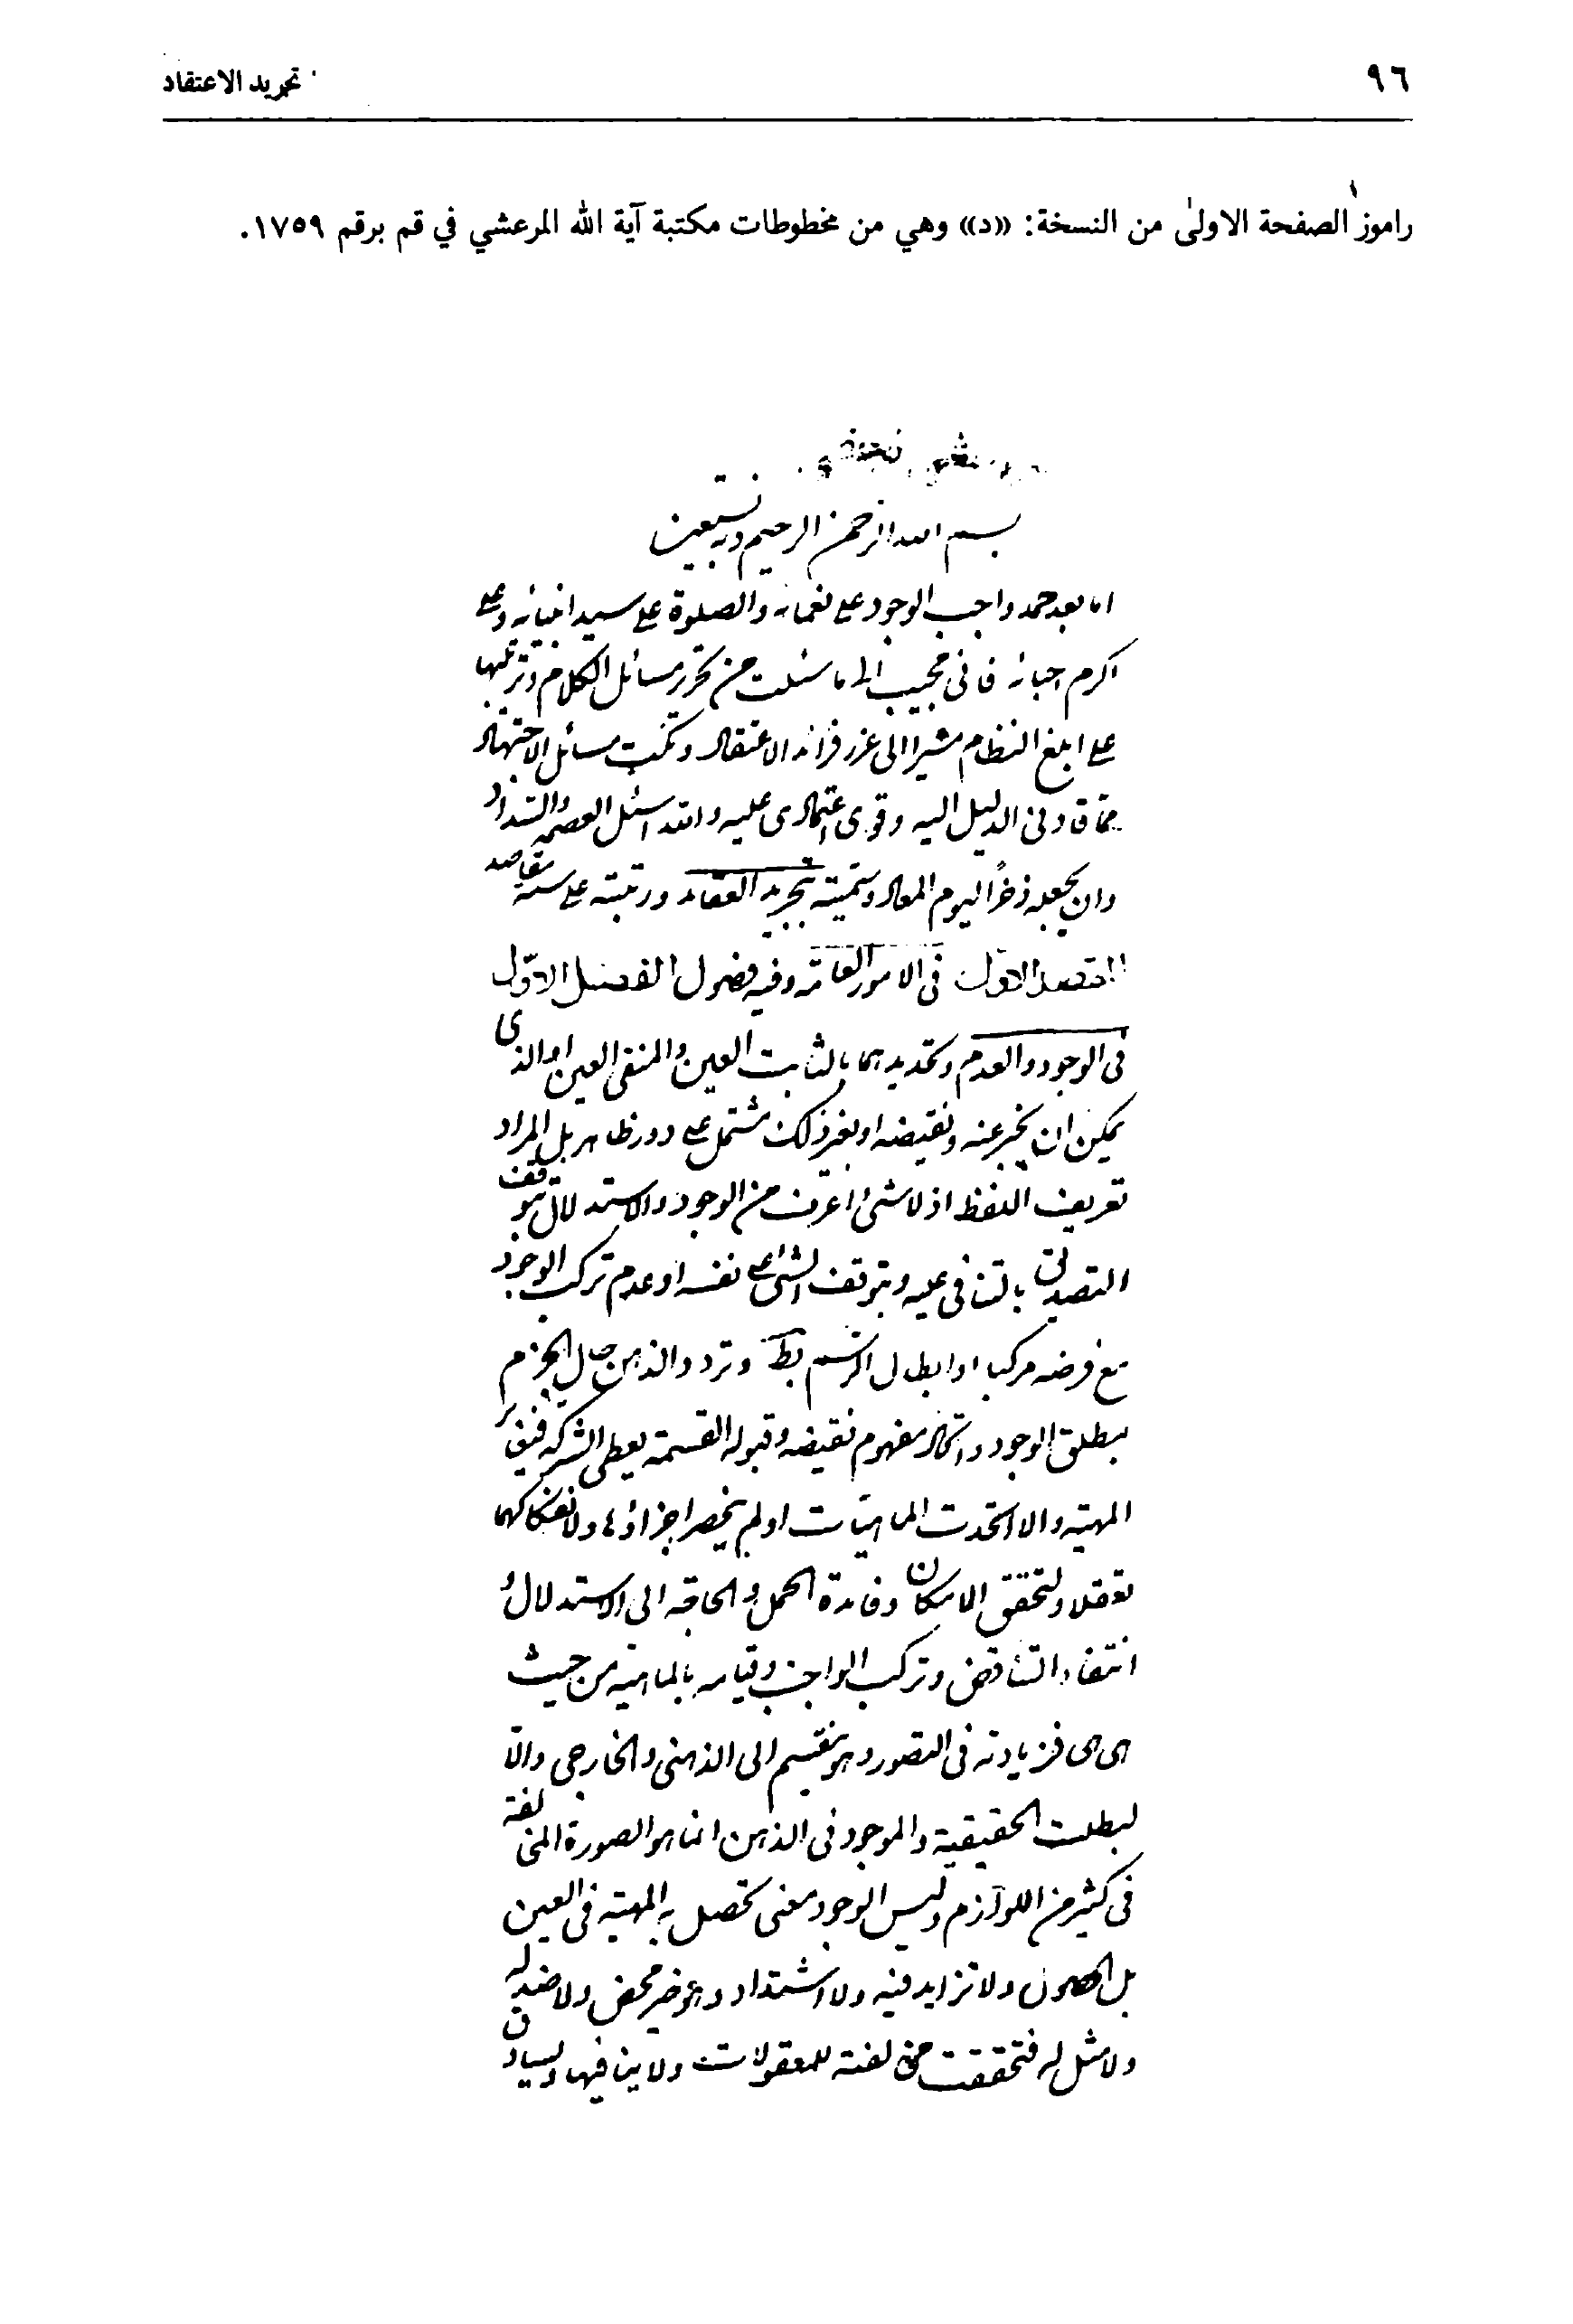 ٩٦
تجريد الاعتقاد
راموز الصفحة الاولىٰ من النسخة: «د» وهي من مخطوطات مكتبة آية الله المرعشي في قم برقم ١٧٥٩.
بسم الله الرحمن الرحيم وبه نستعين
اما بعد حمد واجب الوجود على نعمائه والصلوة على سيد انبيائه وعلى
اكرم احبائه فانى مجيب الى ما سئلت من تحرير مسائل الكلام وترتيبها
على ابلغ النظام مشيرا الى غرر فرائد الاعتقاد ونكت مسائل الاجتهاد
مما قادنى الدليل اليه وقوى اعتمادى عليه والله اسئل العصمة والسداد
وان يجعله ذخرًا ليوم المعاد وسميته بتجريد العقائد ورتبته على ستة مقاصد
المقصد الاول فى الامور العامة وفيه فصول الفصل الاوّل
فى الوجود والعدم وتحديدهما بالثابت العين والمنفى العين او الذى
يمكن ان يخبر عنه ونقيضه او بغير ذلك مشتمل على دور ظاهر بل المراد
تعريف اللفظ اذ لا شئ اعرف من الوجود والاستدلال بتوقف
التصديق بالتنافى عليه وبتوقف الشئ على نفسه او عدم تركب الوجود
مع فرضه مركبا او ابطال الرسم بط وتردد الذهن حال الجزم
بمطلق الوجود واتحاد مفهوم نقيضه وقبوله القسمة يعطى الشركة فيغاير
المهية والا اتحدت الماهيّات او لم ينحصر اجزاؤها ولانفكاكهما
تعقلا ولتحقق الامكان وفائدة الحمل والحاجة الى الاستدلال و
انتفاء التناقض وتركب الواجب وقيامه بالماهية من حيث
هى هى فزيادته فى التصور وهو ينقسم الى الذهنى والخارجى والّا
لبطلت الحقيقية والموجود فى الذهن انما هو الصورة المخالفة
فى كثير من اللوازم وليس الوجود معنى تحصل به المهية فى العين
بل الحصول ولا تزايد فيه ولا اشتداد وهو خير محض ولا ضد له
ولا مثل له فتحققت مخالفته للمعقولات ولا ينافيها ويساوق